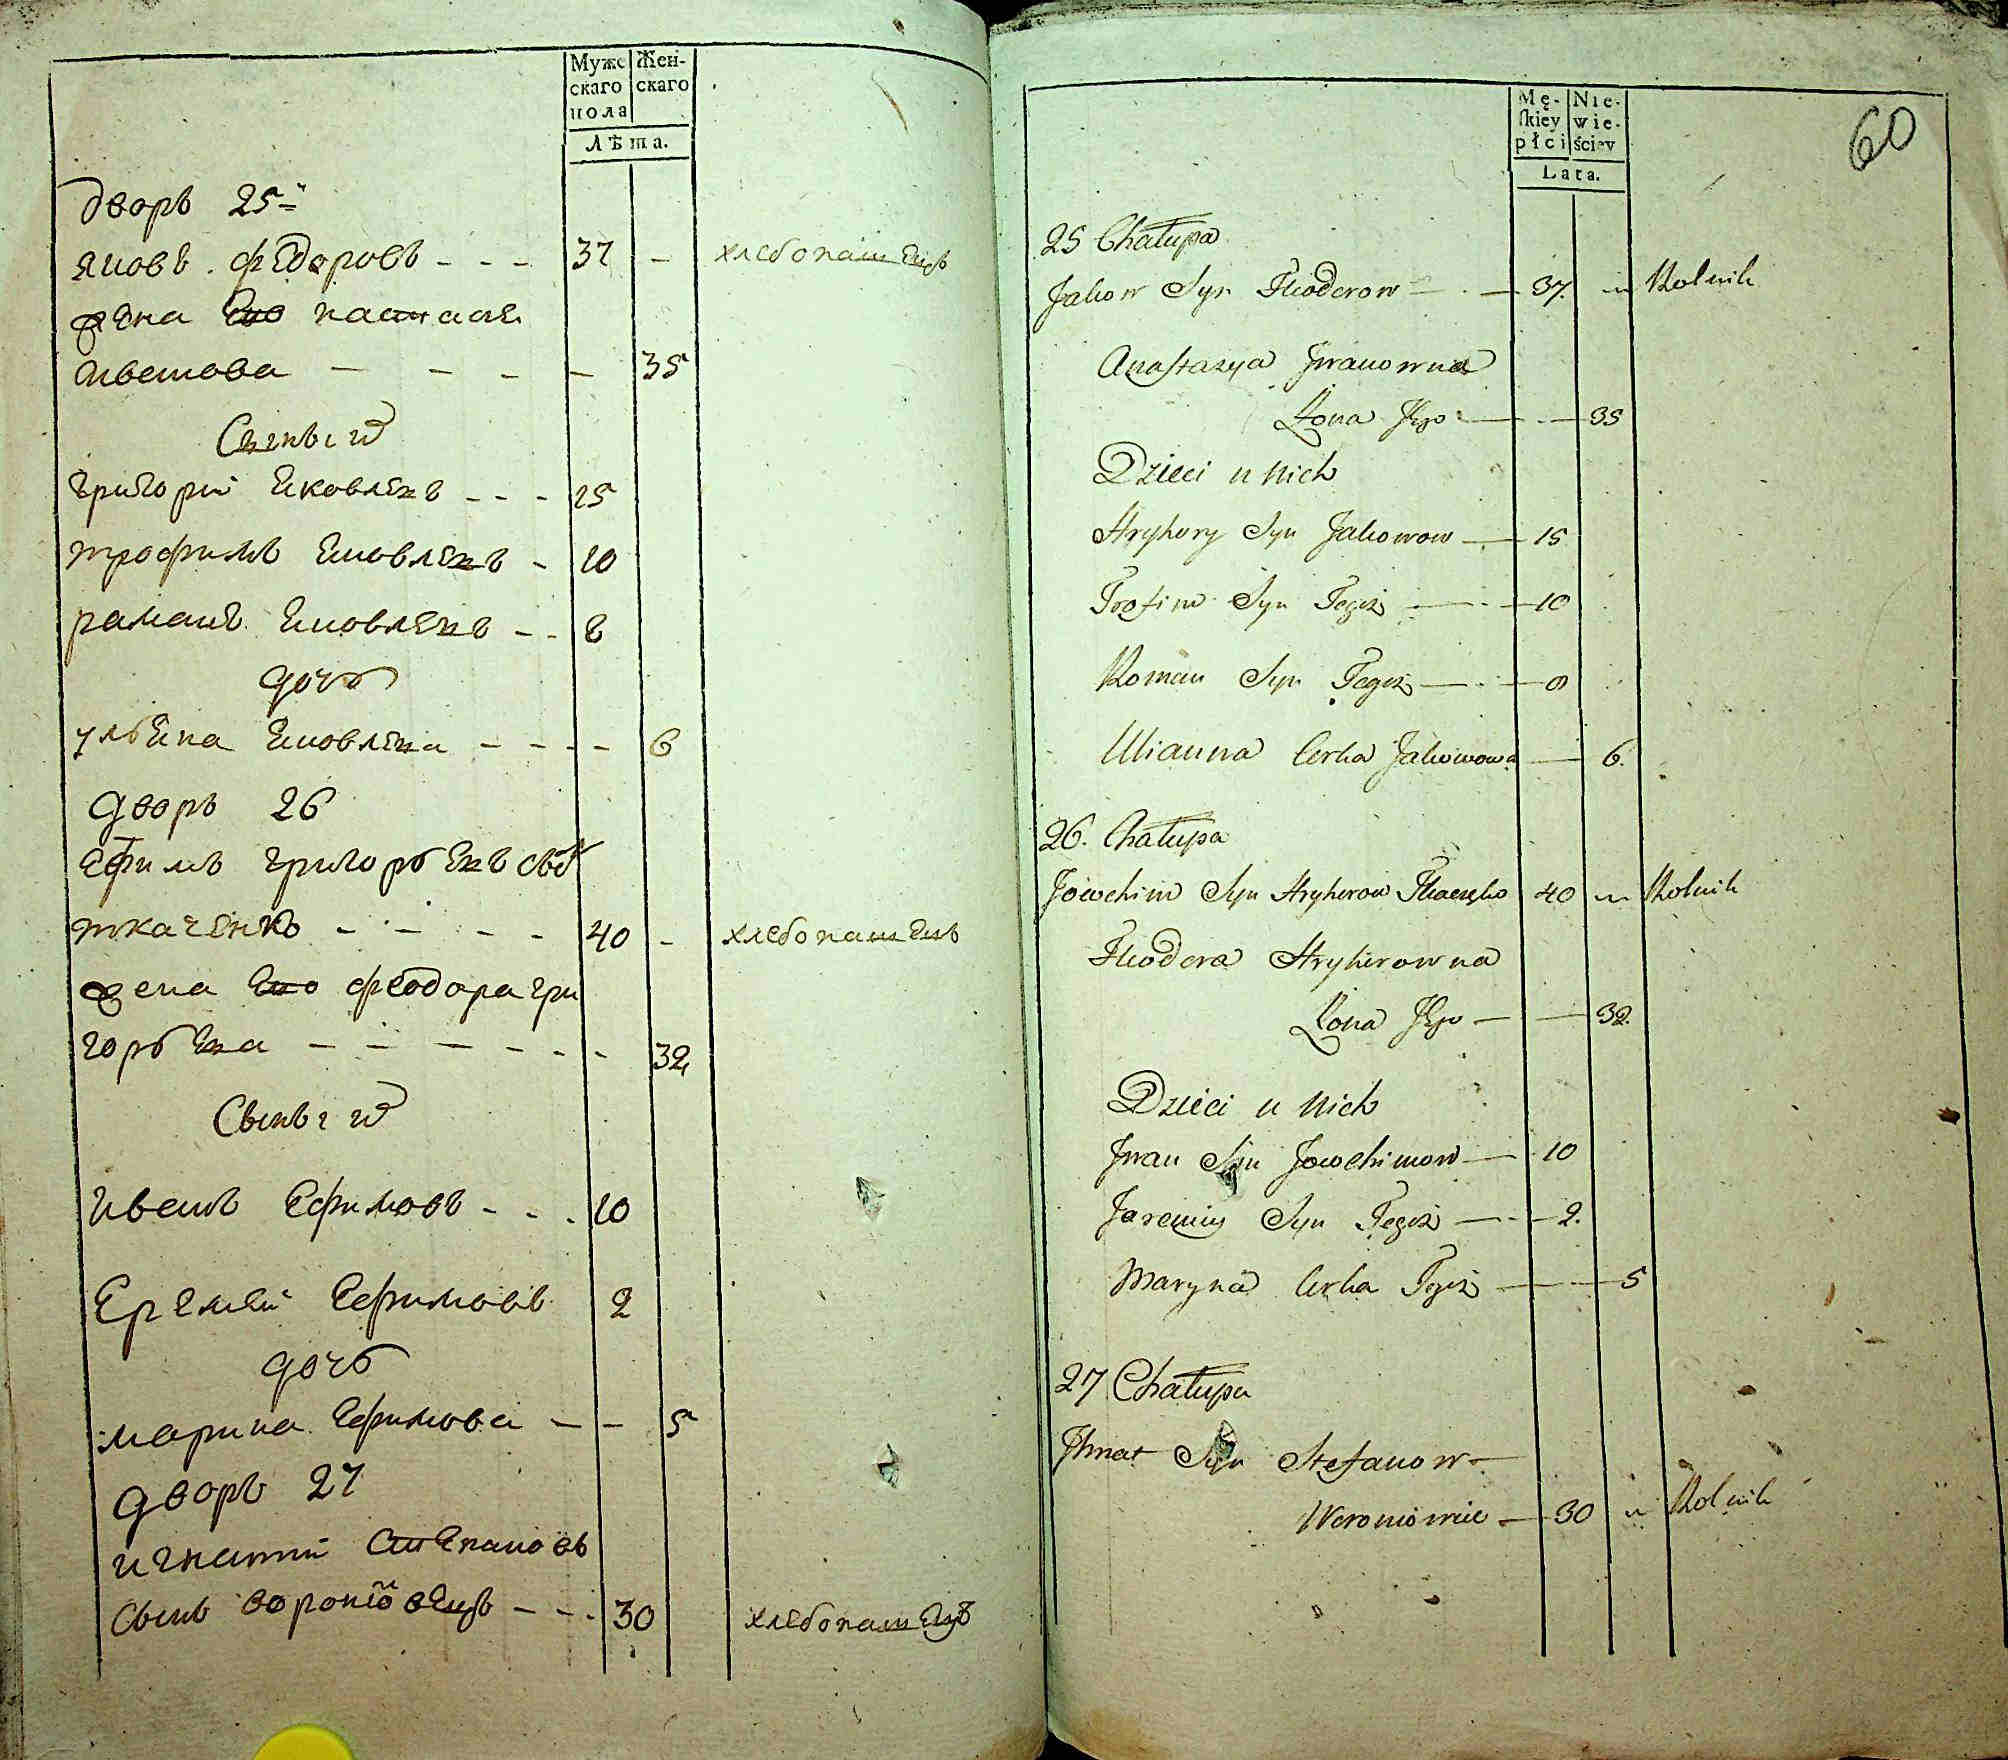 Мужс
скаго
пола
Жен-
скаго
Лѣта.
дворъ 25-й
яковъ федоровъ - - - 37 - хлебопашецъ
жена его настася
иванова - - - - - 35
Сыны и
григорий яковлевъ - - - 15
трофимъ яковлевъ - 10
раманъ яковлевъ - - 8
дочь
ульяна яковлева - - - - 6
дворъ 26
ефимъ григорьевъ снъ
ткаченко - - - - 40 - хлебопашецъ
жена его феодора гри
горьева - - - - - - - 32
Сыны и
иванъ ефимовъ - - - 10
еремѣй ефимовъ 2
дочь
марина ефимова - - 5
дворъ 27
игнатий степановъ
сынъ вороновецъ - - - 30 хлебопашецъ
60
Mę-
skiey
płci
Nie-
wie-
ściey
Lata.
25 Chałupa
Jakow Syn Fiodorow - - 37. „ Rolnik
Anastazya Jwanowna
Żona Jego - - 35
Dzieci u nich
Hryhory Syn Jakowow - 15
Trofim Syn Tegoż - - 10
Roman Syn Tegoż - - 8
Ulianna Corka Jakowowa - 6.
26. Chałupa
Jowchim Syn Hryhorow Tkaczęko 40 „ Rolnik
Fiodora Hryhorowna
Żona Jego - - 32.
Dzieci u nich
Jwan Syn Jowchimow - 10
Jeremiy Syn Tegoż - - 2.
Maryna Corka Tegoż - - 5
27 Chałupa
Jhnat Syn Stefanow -
- 30 „ Rolnik